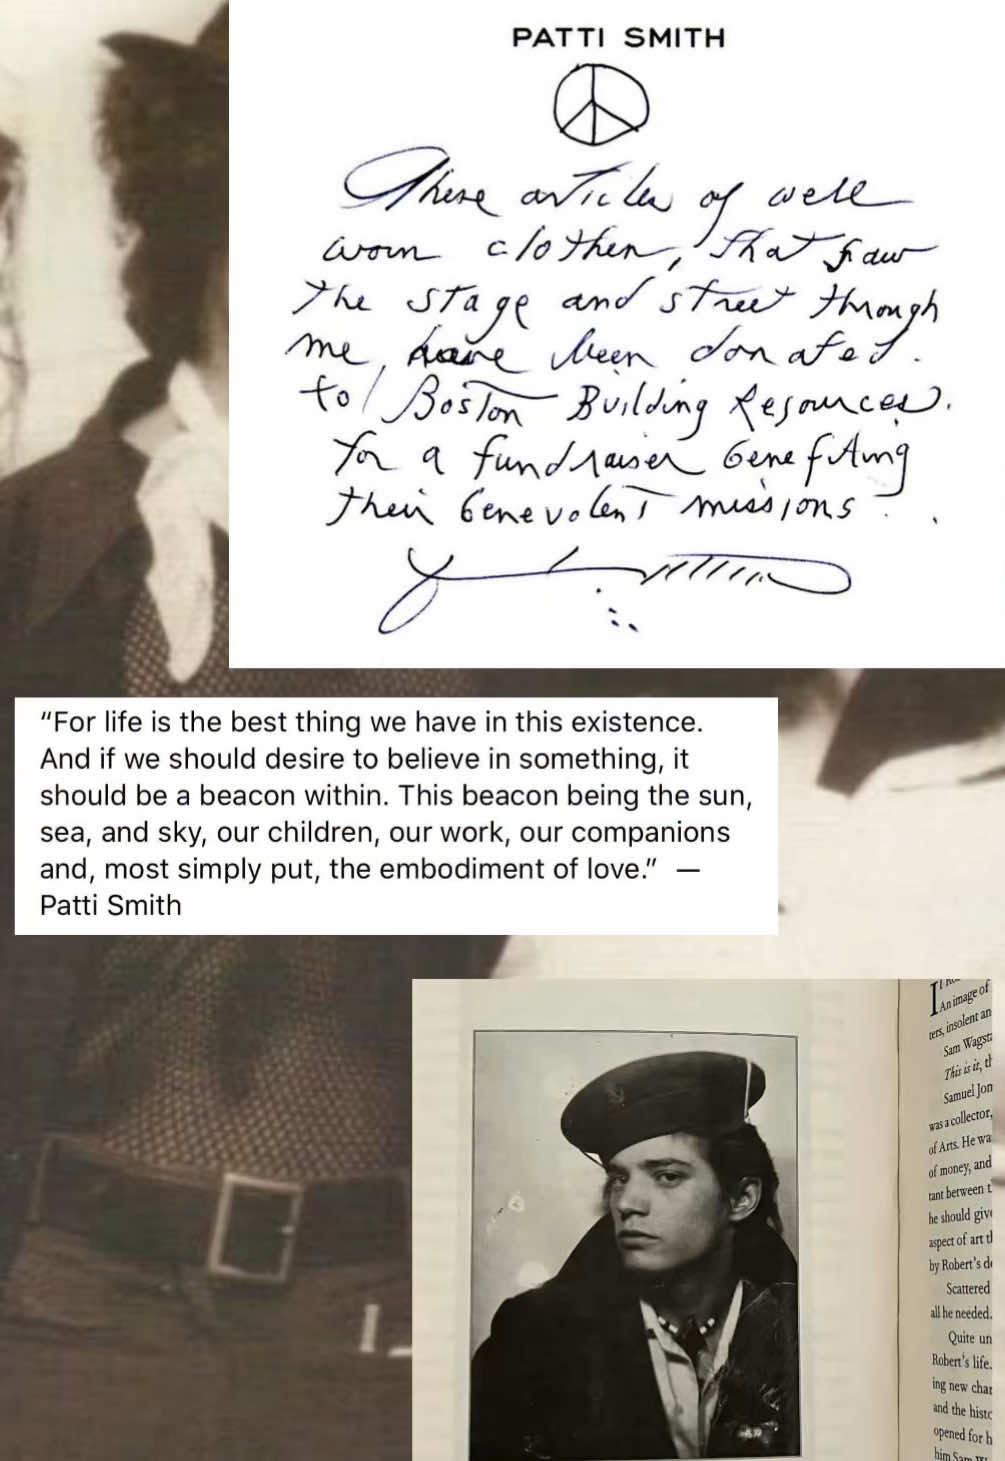 PATTI SMITH
These articles of well
worn clothes, that saw
the stage and street through
me, have been donated.
to Boston Building Resources.
for a fundraiser benefiting
their benevolent missions.
“For life is the best thing we have in this existence.
And if we should desire to believe in something, it
should be a beacon within. This beacon being the sun,
sea, and sky, our children, our work, our companions
and, most simply put, the embodiment of love.” —
Patti Smith
An image of
ters, insolent an
Sam Wagsta
This is it, th
Samuel Jon
was a collector,
of Arts. He wa
of money, and
tant between t
he should give
aspect of art th
by Robert's de
Scattered
all he needed.
Quite un
Robert's life.
ing new char
and the histo
opened for h
him Sam W